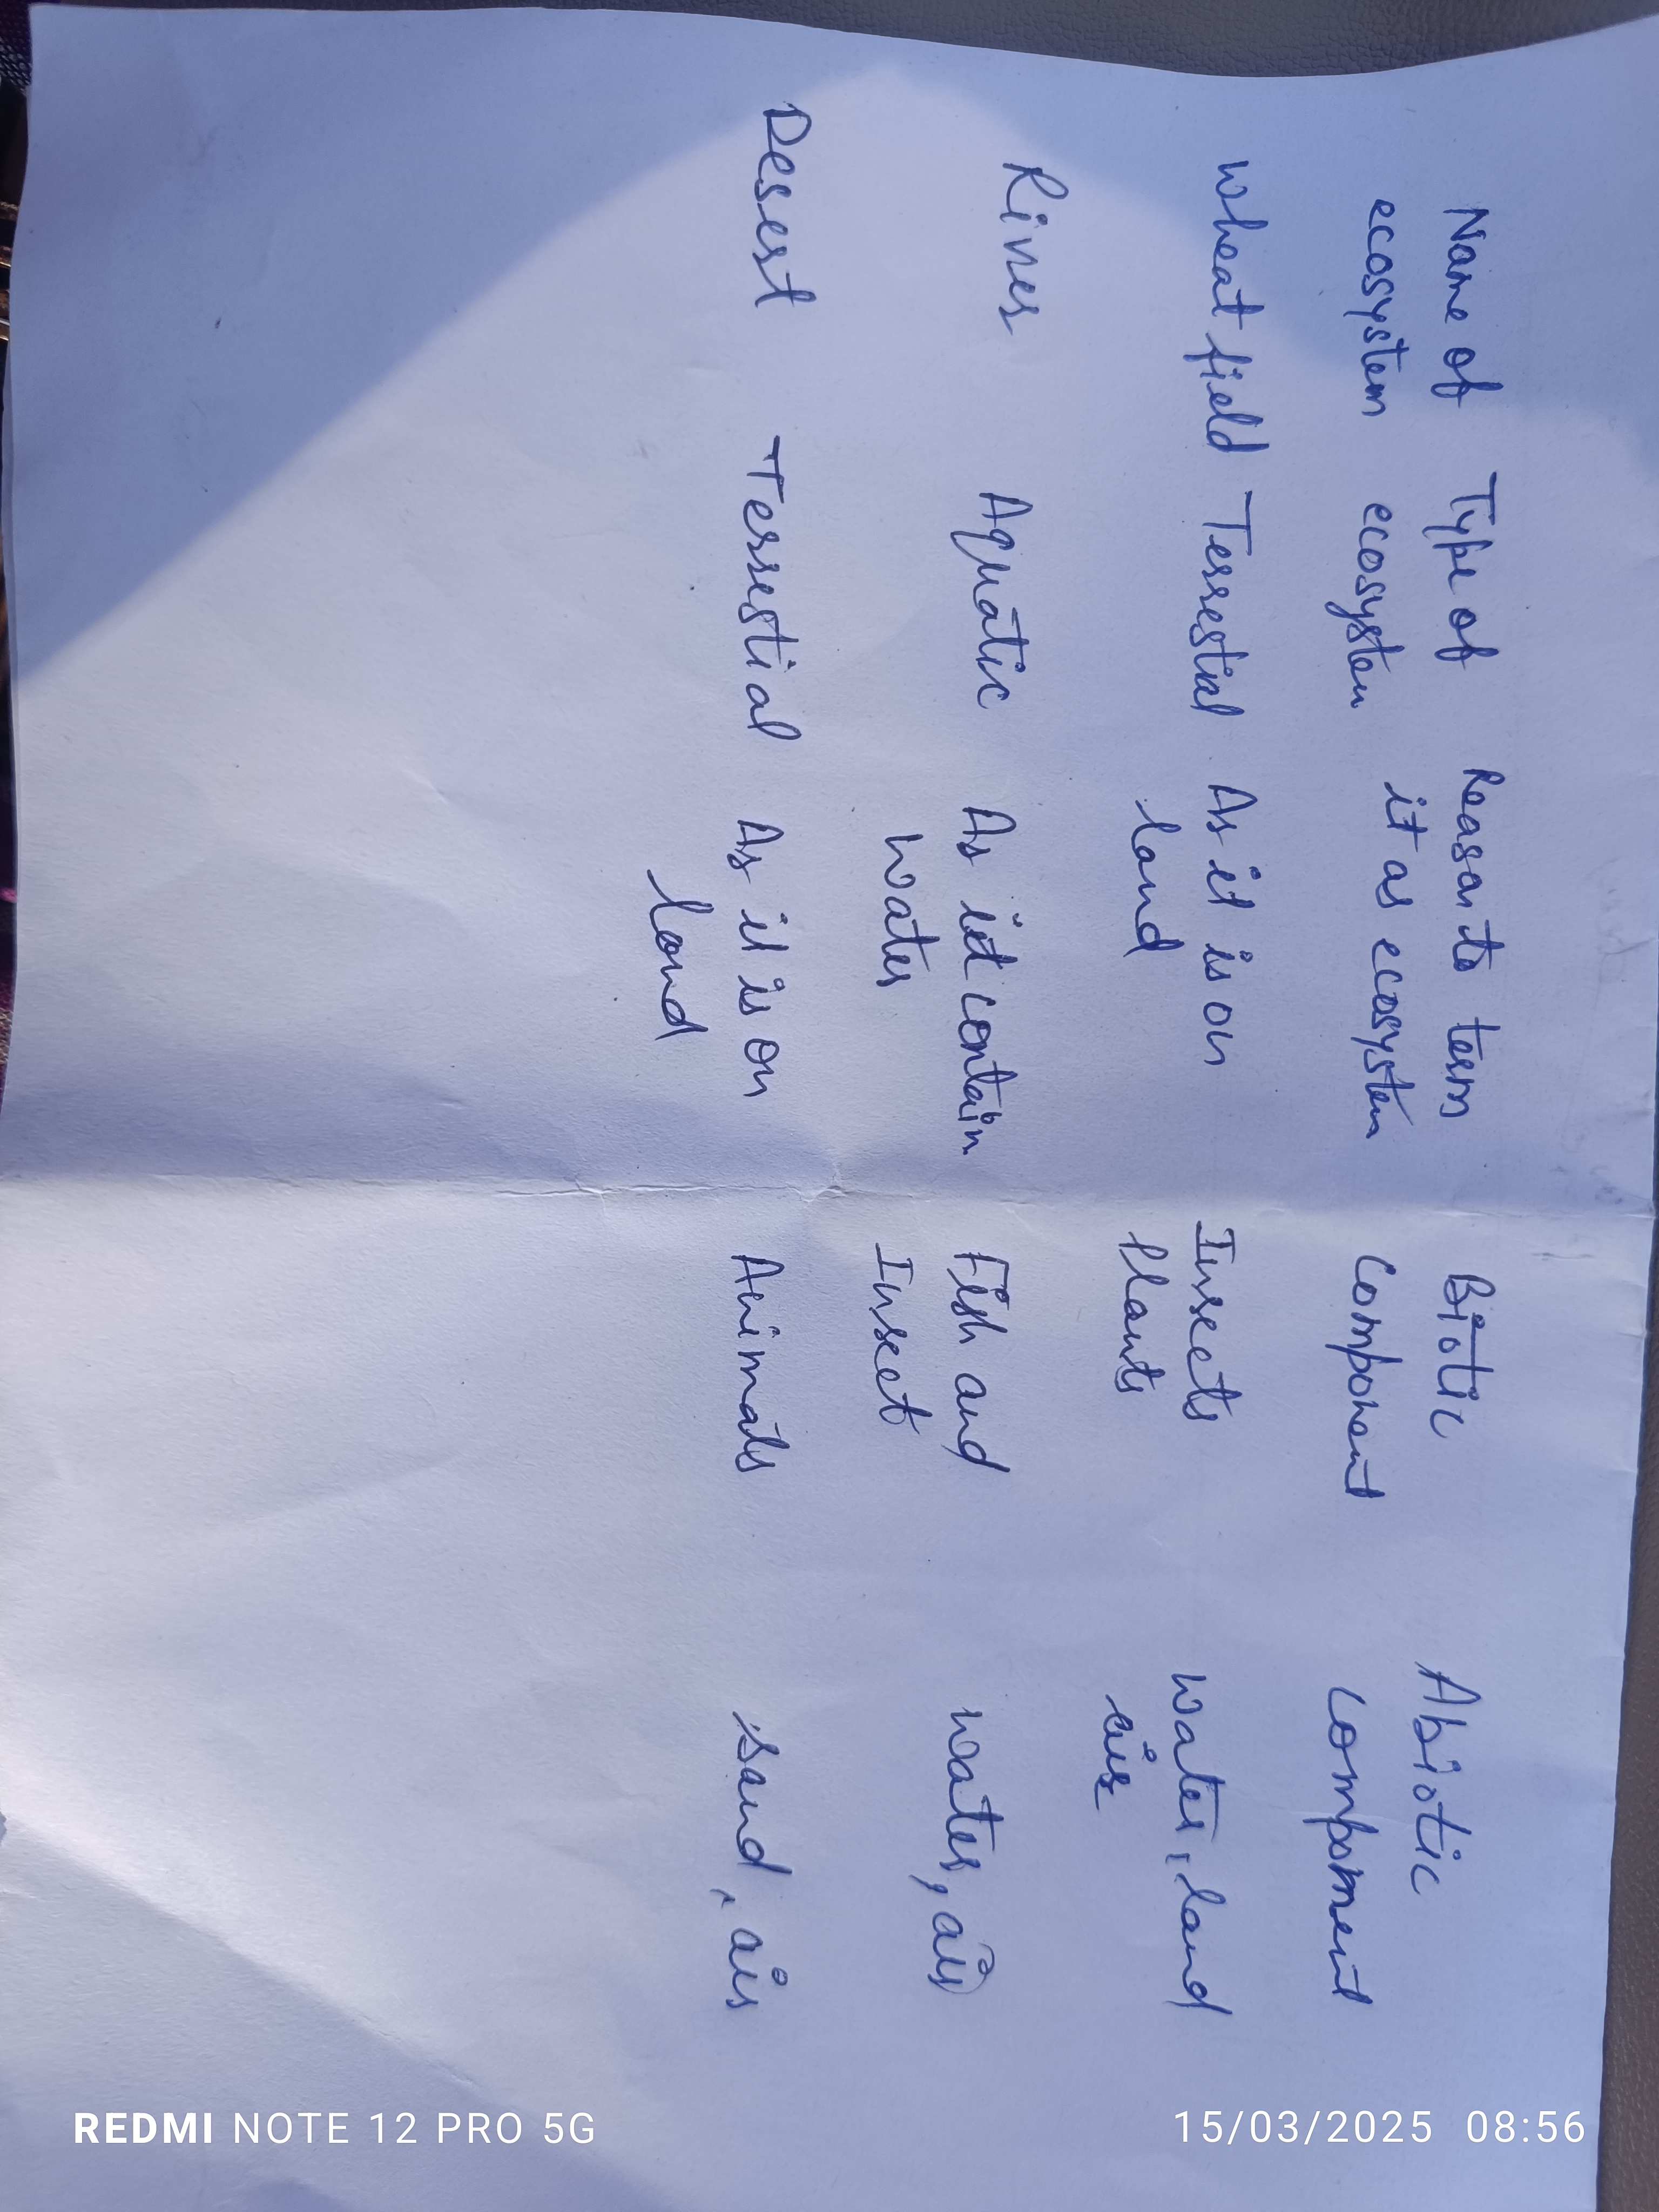 Name of Type of Reason to term Biotic Abiotic
ecosystem ecosystem it as ecosystem Component component
Wheat field Terrestial As it is on Insects water, land
land Plants air
River Aquatic As it contain Fish and water, air
water Insect
Desert Terrestial As it is on Animals sand, air
land
REDMI NOTE 12 PRO 5G
15/03/2025 08:56